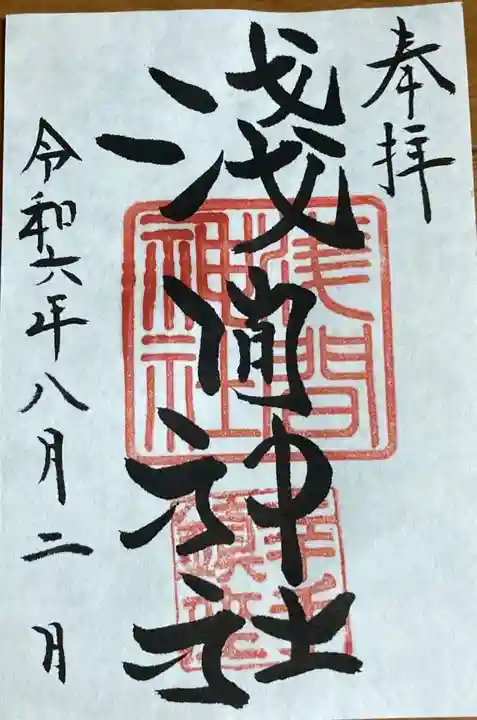 奉拝
淺間神社
浅間
神社
令和六年八月二月